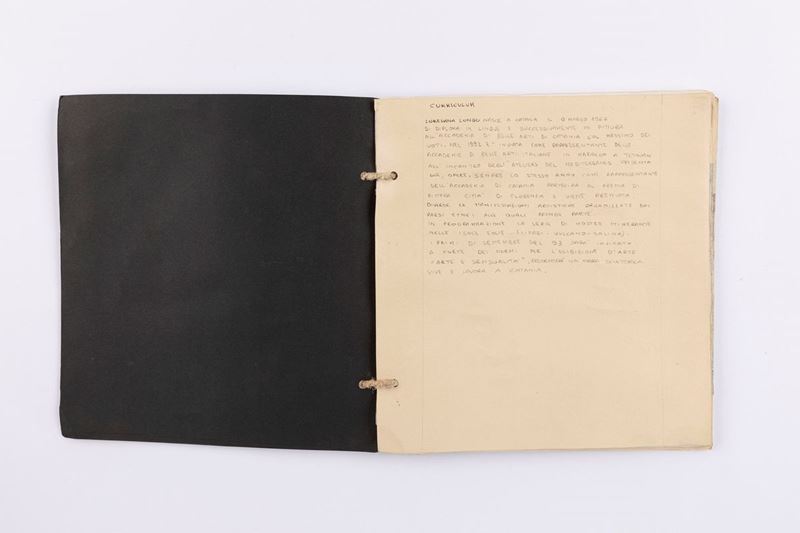 CURRICULUM
LOREDANA LONGO NASCE A CATANIA IL 9 MARZO 1967
SI DIPLOMA IN LINGUE E SUCCESSIVAMENTE IN PITTURA
ALL'ACCADEMIA DI BELLE ARTI DI CATANIA COL MASSIMO DEI
VOTI. NEL 1992 E' INVIATA COME RAPPRESENTANTE DELLE
ACCADEMIE DI BELLE ARTI ITALIANE IN MAROCCO A TETOUAN
ALL'INCONTRO DEGLI "ATELIERS DEL MEDITERRANEO"
OPERE. SEMPRE LO STESSO ANNO COME RAPPRESENTANTE
DELL'ACCADEMIA DI CATANIA PARTECIPA AL PREMIO DI
PITTURA CITTA' DI FLORENZIA E VIENE PREMIATA.
DIVERSE LE MANIFESTAZIONI ARTISTICHE ORGANIZZATE DAI
PAESI ETNEI ALLE QUALI PRENDE PARTE.
IN PROGRAMMAZIONE LA SERIE DI MOSTRE ITINERANTE
NELLE ISOLE EOLIE (LIPARI-VULCANO-SALINA).
I PRIMI DI SETTEMBRE DEL 93 SARA' INVITATA
A FORTE DEI MARMI PER L'ESIBIZIONE D'ARTE
"ARTE E SENSUALITA'", UNA
VIVE E LAVORA A CATANIA.